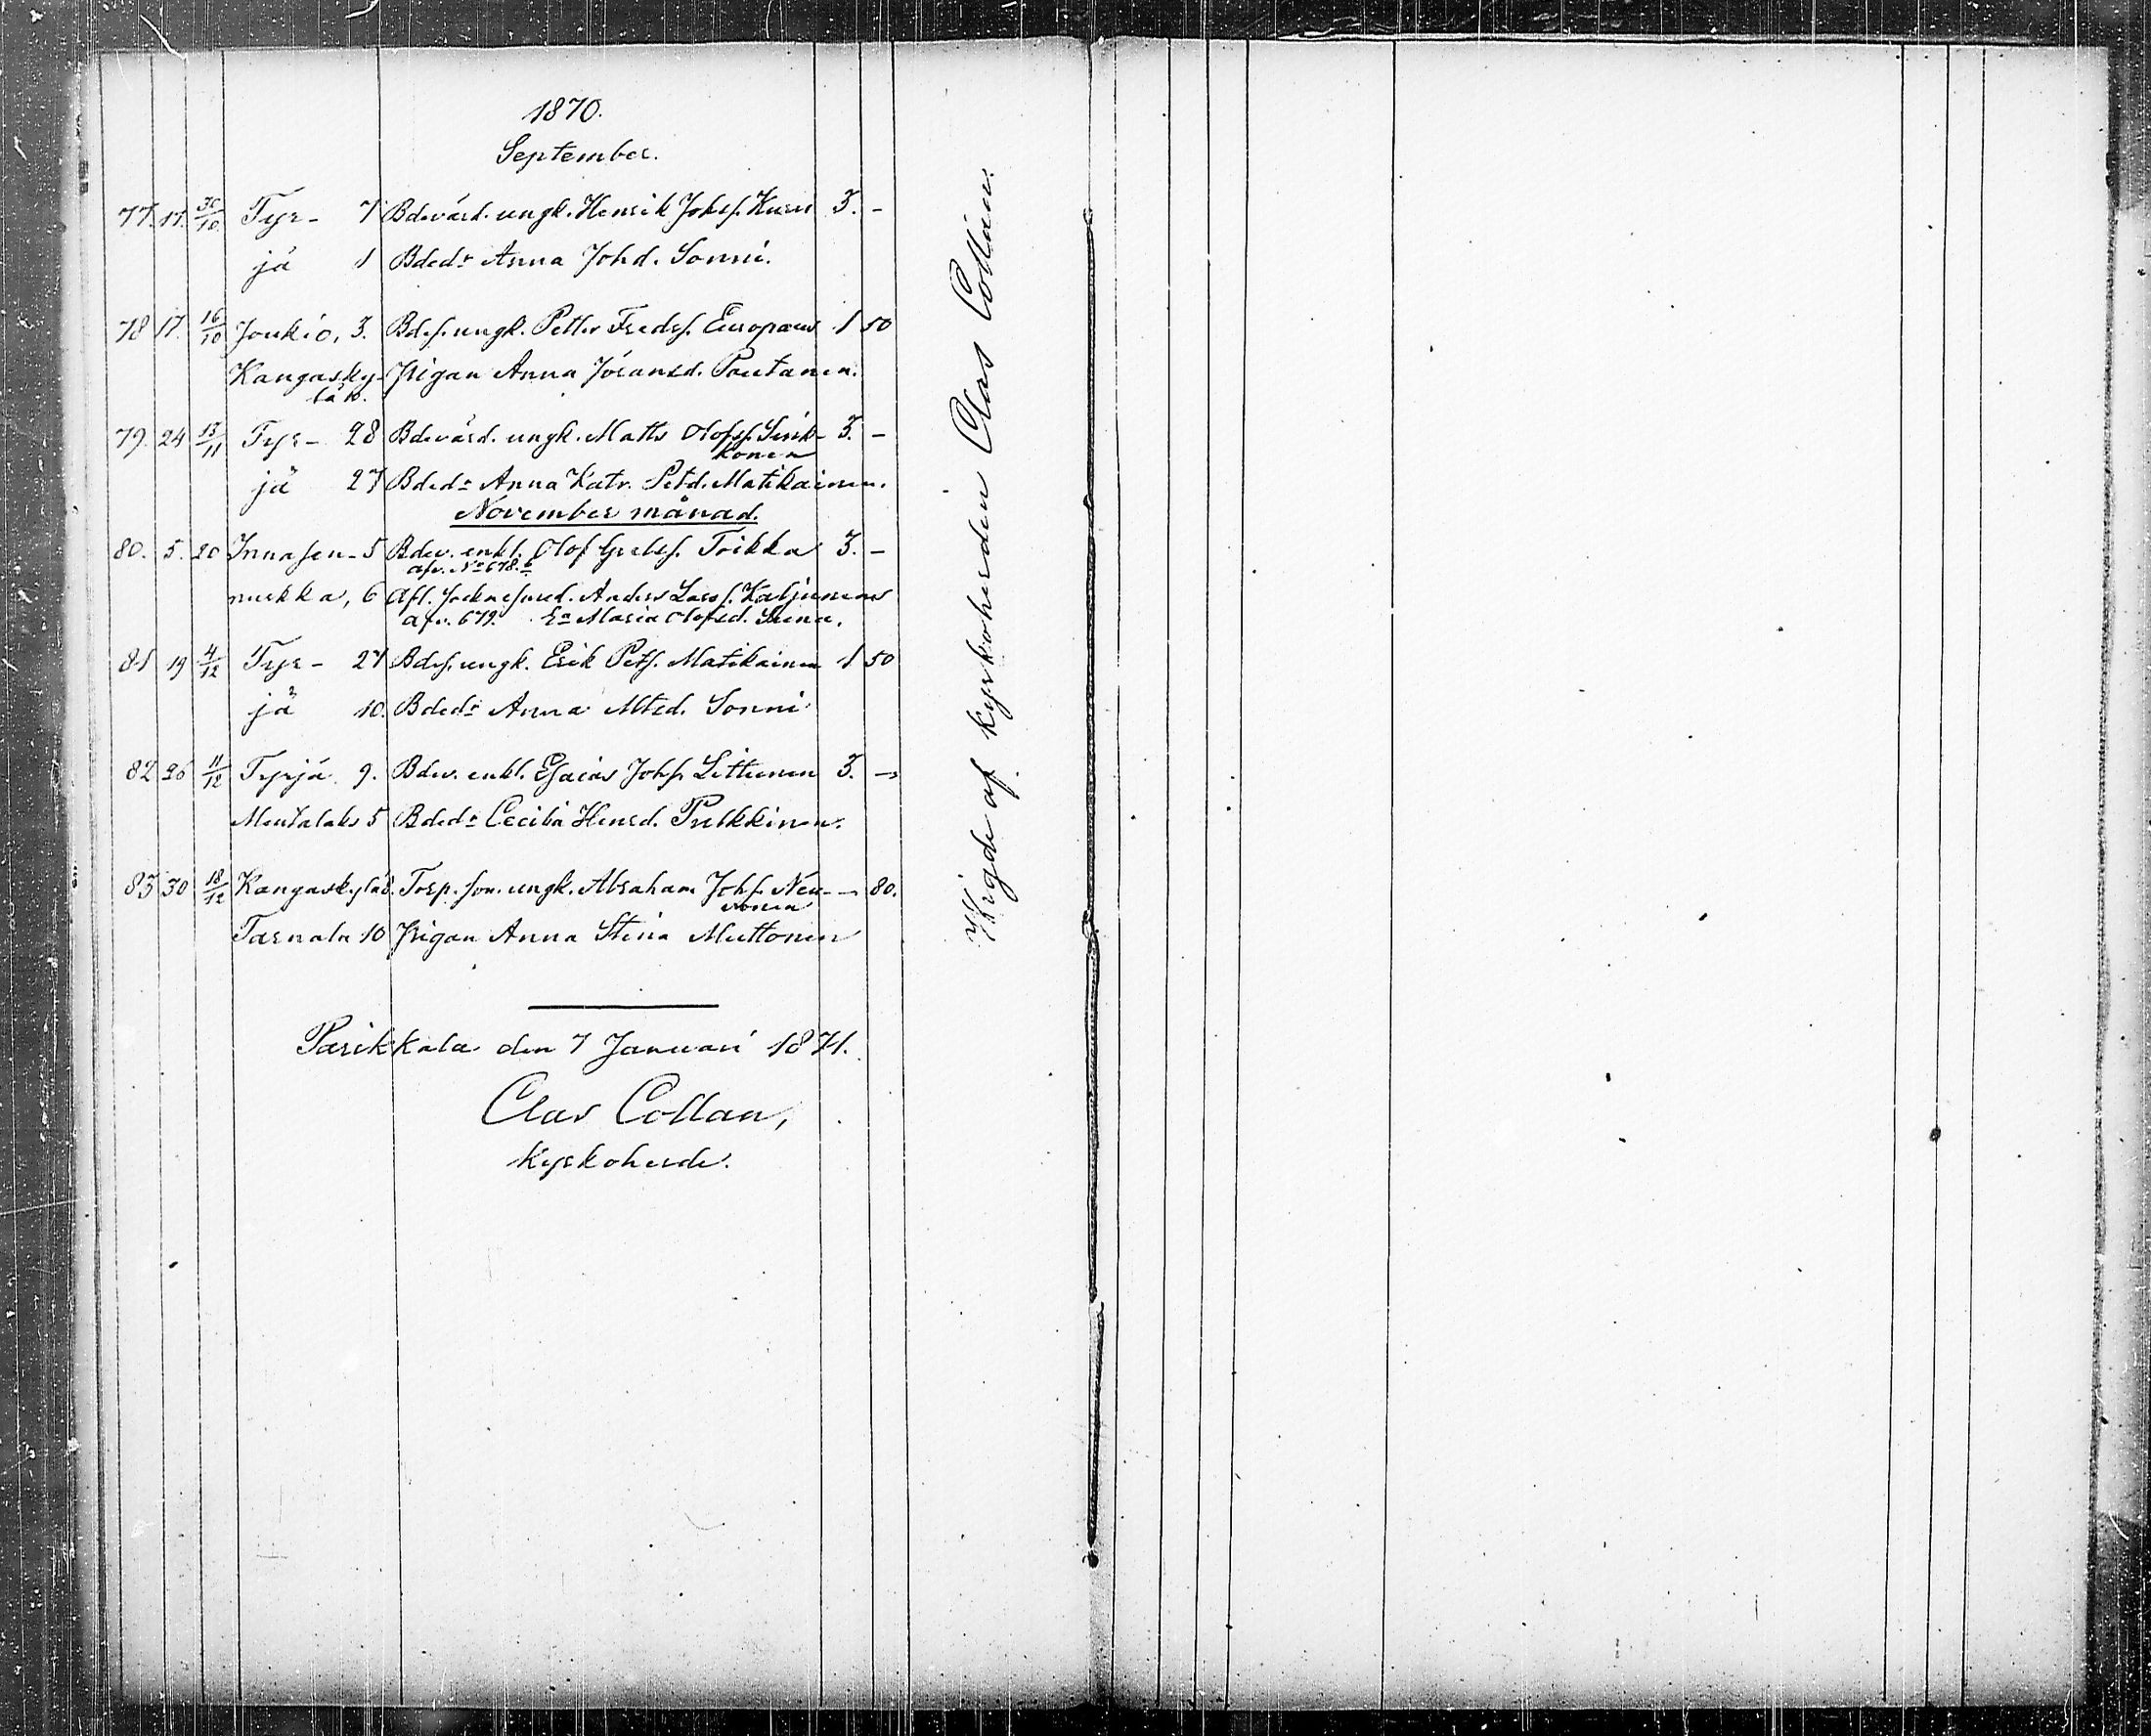 1870.
September.
77. 17. 30/10 Tyr- 7 Bdevärd. ungk. Henrik Johsf. Kurvi 3. -
jä 1 Bdedr Anna Johd. Sonni.
78 17. 16/10 Joukio, 3. Bdesf. ungk. Petter Fredsf. Europaeus 1 50
Kangasky- Pigan Anna Göransd. Poutanen.
lä 10.
79. 24 13/11 Tyr- 28 Bdevärd. ungk. Matts Olofsf. Sink- 3. -
konen
jä 27 Bdedr Anna Katr. Petd. Matikainen.
November månad.
80. 5. 20 Innasen- 5 Bdev. enkl. Olof Grelsf. Toikka 3. -
afv. No 678. b
nurkka, 6 Afl. Sockne Anders Larsf. Kaljunens
afv. 679. Ea Maria Olofsd.
81 19 4/12 Tyr- 27 Bdesf. ungk. Erik Petsf. Matikainen 1 50
jä 10. Bdedr Anna Mtsd. Sonni
82 26 11/12 Tyrjä 9. Bdev. enkl. Esaias Johsf. Littunen 3. -
Mentalaks 5 Bdedr Cecilia Hensd. Pulkkinen.
83 30 18/12 Kangaskylä 8. Torp. son. ungk. Abraham Johsf. Neu- - 80.
vonen
Tarnala 10 Pigan Anna Stina Muttonen
Parikkala den 7 Januari 1871.
Clas Collan,
Kyrkoherde.
Wigde af kyrkoherden Clas Collan.